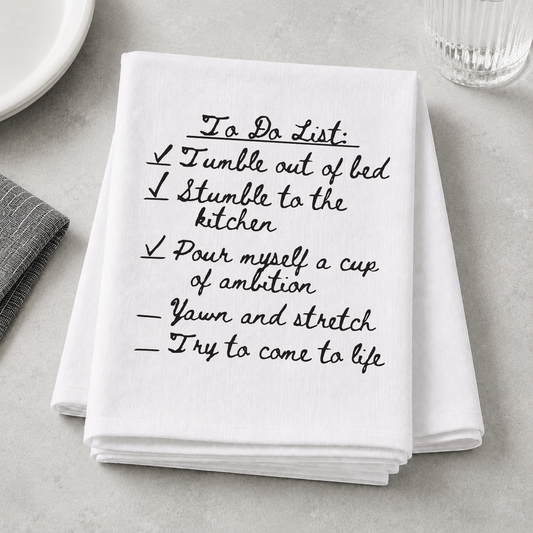 To Do List:
✓ Tumble out of bed
✓ Stumble to the
kitchen
✓ Pour myself a cup
of ambition
_ Yawn and stretch
_ Try to come to life